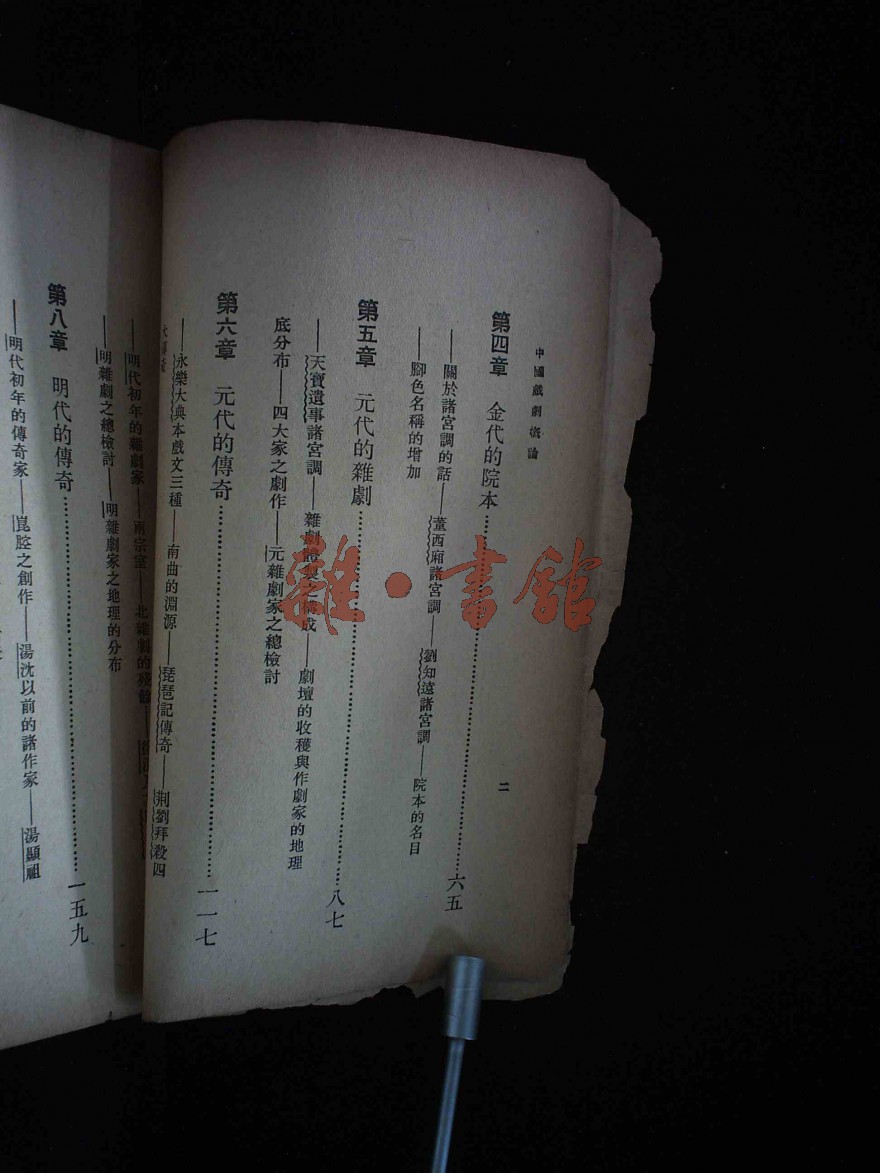 中國戲劇概論
二
第四章 金代的院本……………………六五
——關於諸宮調的話——董西廂諸宮調——劉知遠諸宮調——院本的名目
——腳色名稱的增加
第五章 元代的雜劇……………………八七
——天寶遺事諸宮調——雜劇體製之構成——劇壇的收穫與作劇家的地理
底分布——四大家之劇作——元雜劇家之總檢討
第六章 元代的傳奇……………………一一七
——永樂大典本戲文三種——南曲的淵源——琵琶記傳奇——荆劉拜殺四
——明代初年的雜劇家——兩宗室——北雜劇的殘餘——
——明雜劇之總檢討——明雜劇家之地理的分布
第八章 明代的傳奇……………………一五九
——明代初年的傳奇家——崑腔之創作——湯沈以前的諸作家——湯顯祖
雜·書館